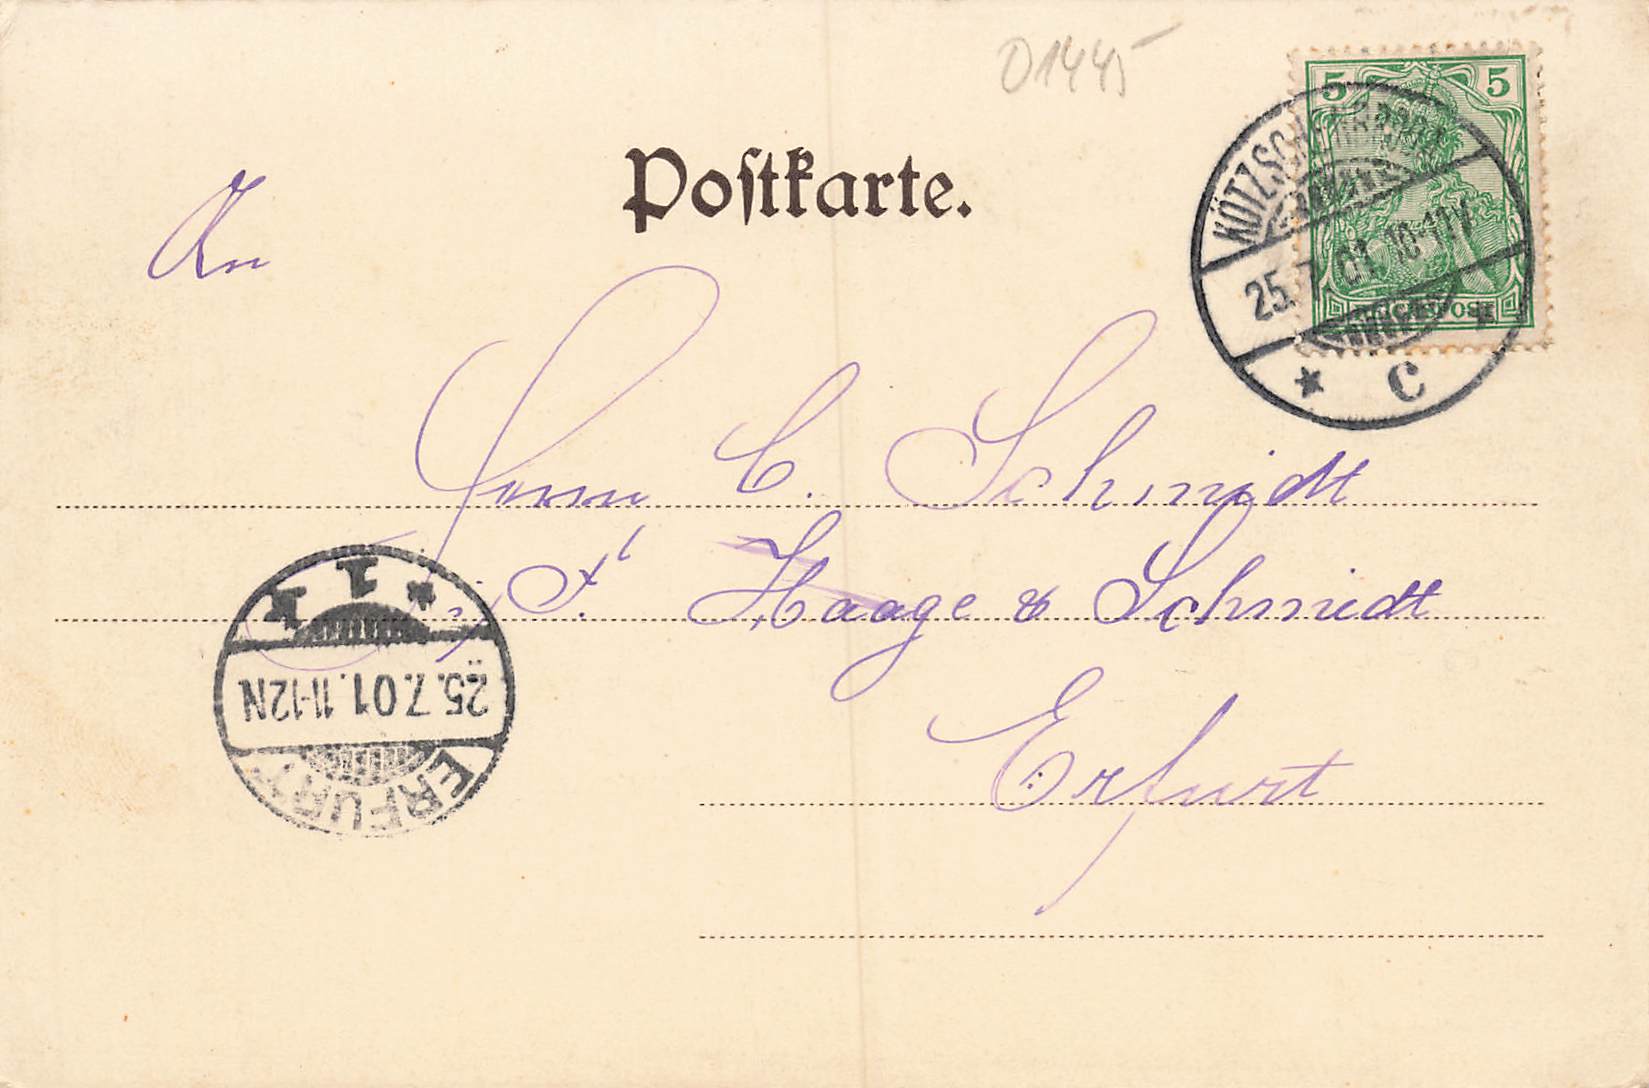 01445
5 5
KÖTZSCHENBRODA
25.7.01. 10-11V.
* C *
REICHSPOST
Postkarte.
An
Herrn C. Schmidt
Haage & Schmidt
Erfurt
* 1 *
25.7.01. 11-12N
ERFURT